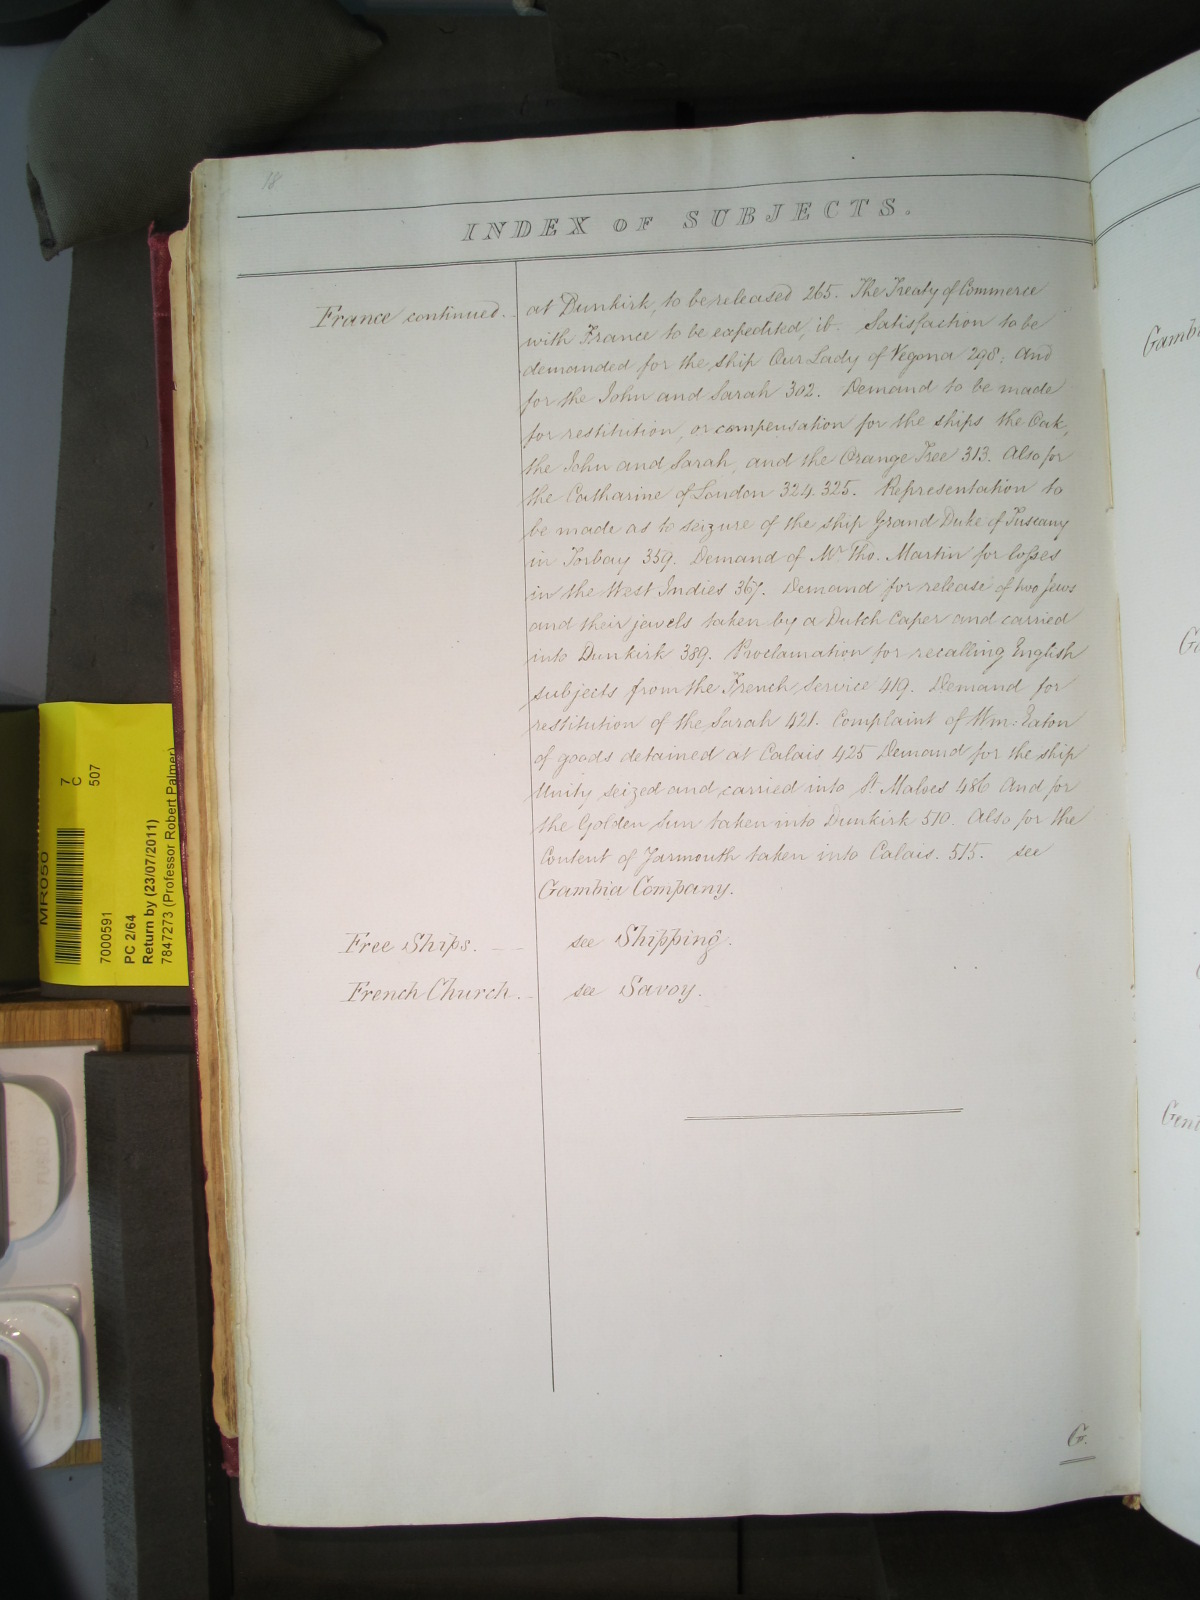 18
INDEX OF SUBJECTS.
France continued. at Dunkirk, to be released 265. The Treaty of Commerce
with France to be expedited, ib. Satisfaction to be
demanded for the ship Our Lady of Vegona 298: And
for the John and Sarah 302. Demand to be made
for restitution, or compensation for the ships the Oak,
the John and Sarah, and the Orange Tree 313. Also for
the Catharine of London 324. 325. Representation to
be made as to seizure of the ship Grand Duke of Tuscany
in Torbay 359. Demand of Mr. Tho. Martin for losses
in the West Indies 367. Demand for release of two Jews
and their jewels taken by a Dutch Caper and carried
into Dunkirk 389. Proclamation for recalling English
subjects from the French Service 419. Demand for
restitution of the Sarah 421. Complaint of Wm: Eaton
of goods detained at Calais 425 Demand for the ship
Unity seized and carried into St. Maloes 486 And for
the Golden Sun taken into Dunkirk 510. Also for the
Content of Yarmouth taken into Calais. 515. see
Gambia Company.
Free Ships. see Shipping.
French Church. see Savoy.
G.
7
C
507
MR050
7000591
PC 2/64
Return by (23/07/2011)
7847273 (Professor Robert Palmer)